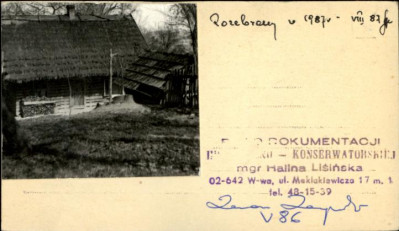 Rozebrany w 1987r - VIII 87
DOKUMENTACJI
KONSERWATORSKIEJ
mgr Halina Lisińska
02-642 W-wa, ul. Maklakiewicza 17 m. 1
tel. 48-15-39
V 86